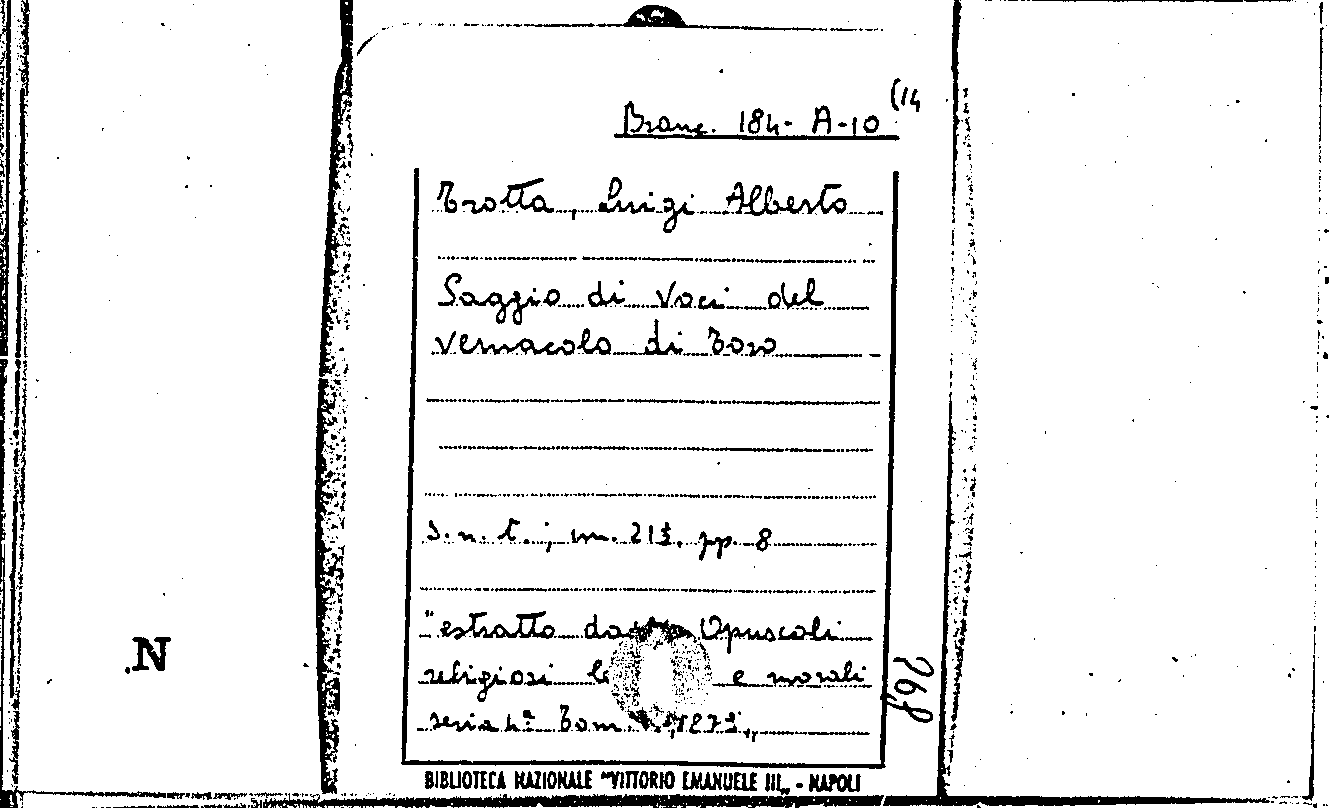 (14
Branc. 184- A-10
Trotta, Luigi Alberto
Saggio di Voci del
vernacolo di Toro
s. n. t.; in. pp. 8
"estratto Opuscoli
religiosi e morali
seria 4ª Tom.
N
768
BIBLIOTECA NAZIONALE "VITTORIO EMANUELE III„ - NAPOLI